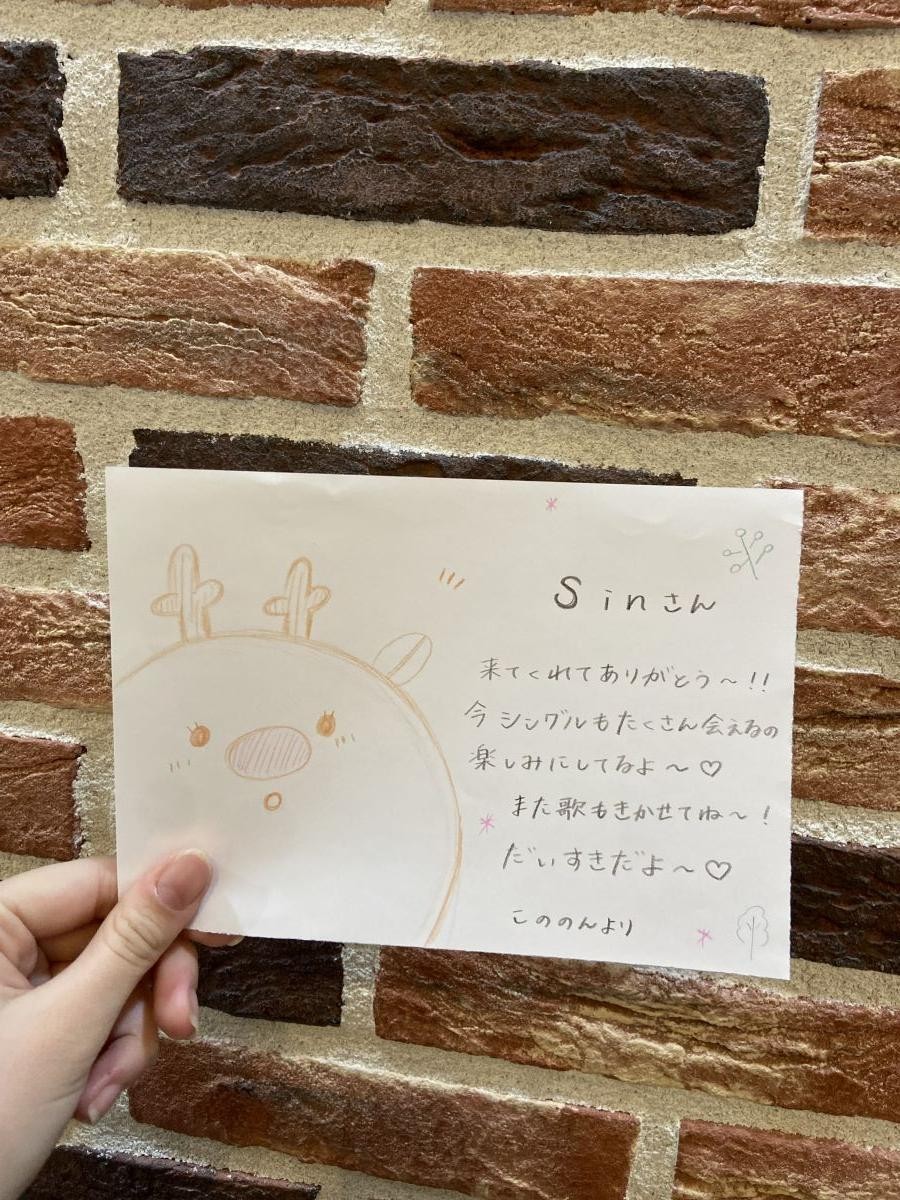 Sinさん
来てくれてありがとう〜!!
今シングルもたくさん会えるの
楽しみにしてるよ〜♡
また歌もきかせてね〜!
だいすきだよ〜♡
こののんより